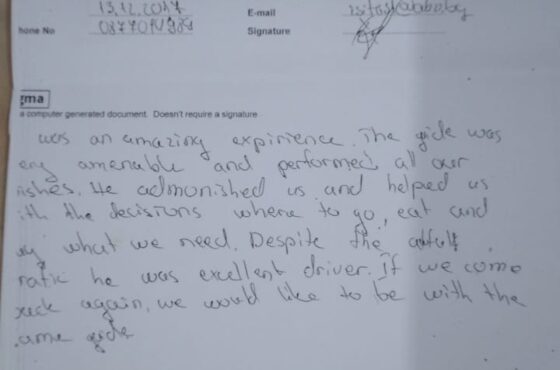 13.12.2017 E-mail
hone No Signature
gma
a computer generated document. Doesn't require a signature
was an amazing expirience. The gide was
ery amenable and performed all our
ishes. He admonished us and helped us
ith the decisions where to go, eat and
uy what we need. Despite the
rafic he was excellent driver. If we come
back again, we would like to be with the
ame gide